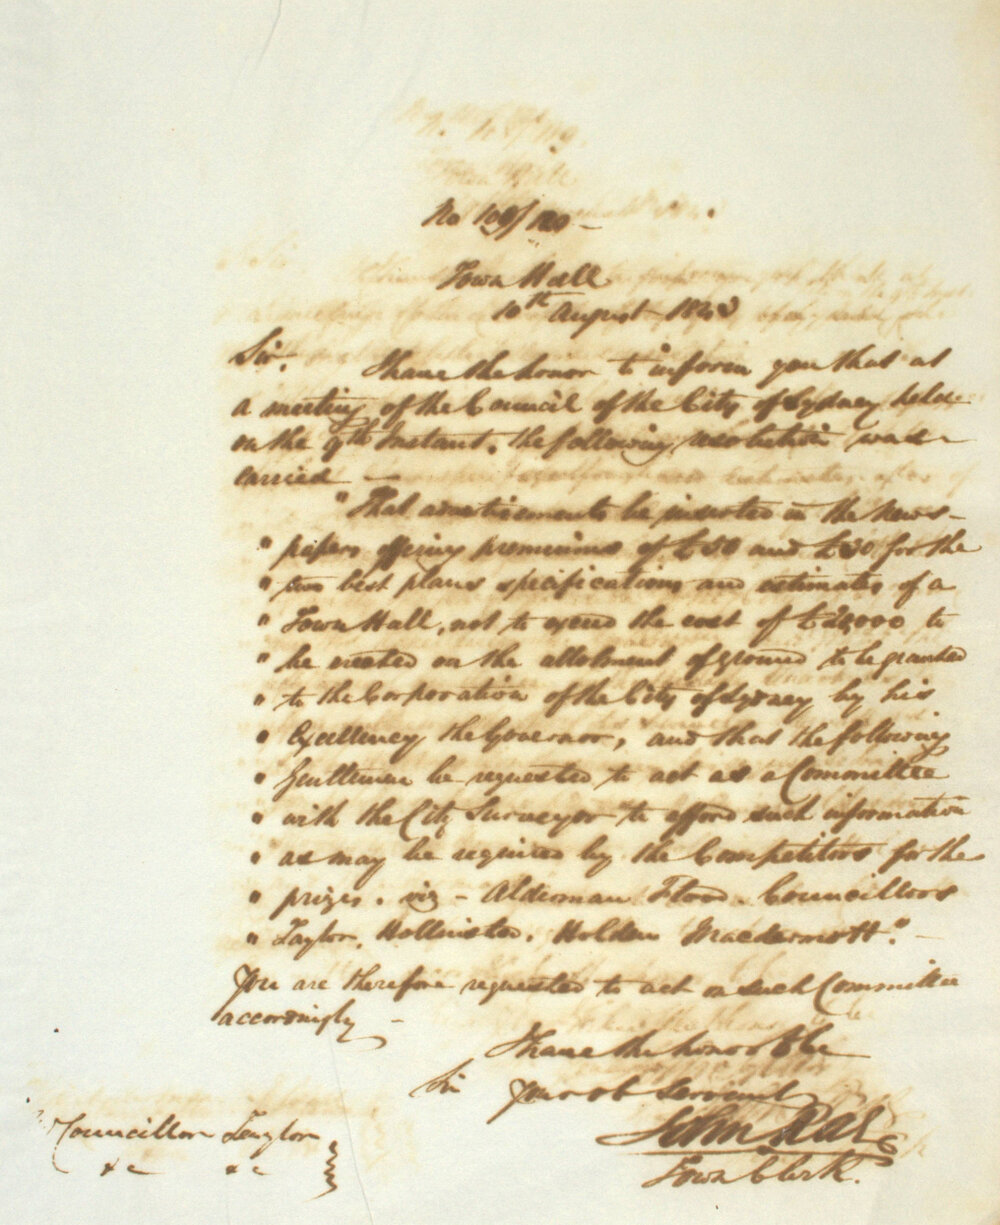 Town Hall
10th August 1843
Sir, I have the honor to inform you that at
a meeting of the Council of the City of Sydney held
on the 9th Instant, the following resolution was
carried —
"That advertisements be inserted in the News-
" papers offering premiums of £50 and £30 for the
" two best plans specifications and estimates of a
" Town Hall, not to exceed the cost of £20,000 to
" be erected on the allotment of ground to be granted
" to the Corporation of the City of Sydney by his
" Excellency the Governor, and that the following
" Gentlemen be requested to act as a Committee
" with the City Surveyor to afford such information
" as may be required by the Competitors for the
" prizes. viz - Alderman Flood. Councillors
" Taylor, Hollinsted, Holden Macdermott." —
You are therefore requested to act on such Committee
accordingly —
I have the honor to be
Sir
Your ob t Servant
John Rae
Town Clerk.
Councillor Taylor
&c &c